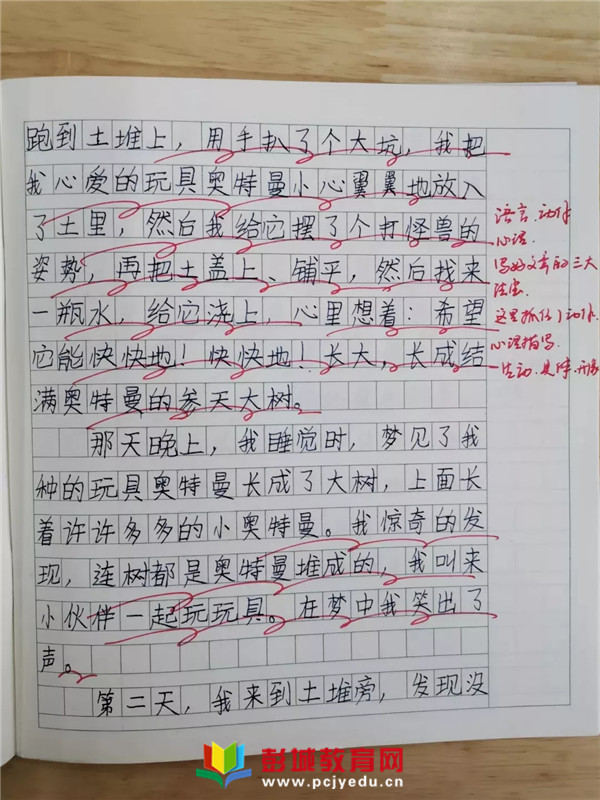 跑到土堆上，用手扒了个大坑，我把
我心爱的玩具奥特曼小心翼翼地放入
了土里，然后我给它摆了个打怪兽的
姿势，再把土盖上、铺平，然后找来
一瓶水，给它浇上，心里想着：希望
它能快快地！快快地！长大，长成结
满奥特曼的参天大树。
那天晚上，我睡觉时，梦见了我
种的玩具奥特曼长成了大树，上面长
着许许多多的小奥特曼。我惊奇的发
现，连树都是奥特曼堆成的，我叫来
小伙伴一起玩玩具。在梦中我笑出了
声。
第二天，我来到土堆旁，发现没
语言、动作
心理
写好文章的三大
法宝
这里抓住了动作、
心理描写
生动、具体
彭城教育网
www.pcjyedu.cn